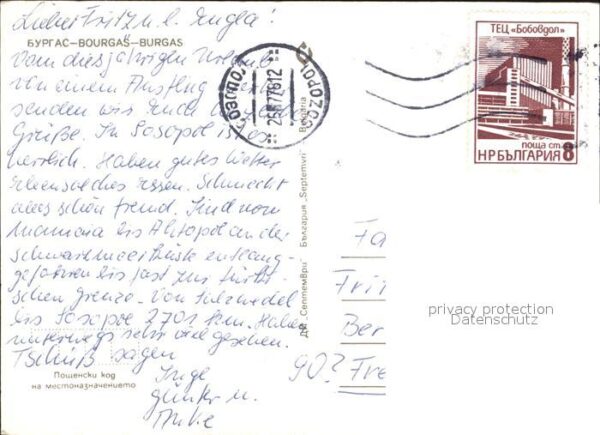 Lieber Fritz u. l. Angla!
БУРГАС—BOURGAS—BURGAS
Vom diesjährigen Urlaub
von einem Ausflug
senden wir Euch
Grüße. In Sosopol ist es
herrlich. Haben gutes Wetter
ebensolches Essen. Schmeckt
alles schön fremd. Sind von
Mamaia bis Ahtopol an der
Schwarzmeerküste entlang-
gefahren bis fast zur türki-
schen Grenze. Von Salzwedel
bis Sosopol 2701 km. Haben
unterwegs sehr viel gesehen.
Tschüß sagen
Inge
Günter u.
Anke
Пощенски код
на местоназначението
ДП „Септември" България „Septemvri" Bulgaria
СОЗОПОЛ
SOZOPOL
ТЕЦ «Бобовдол»
поща ст. 8
НРБЪЛГАРИЯ
Fa
Frit
Ber
90? Fre
privacy protection
Datenschutz